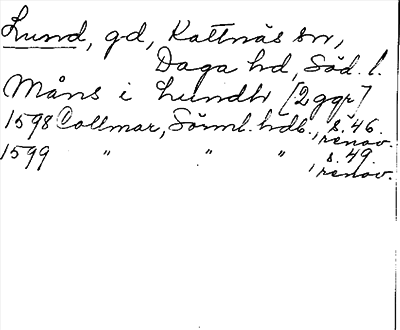 Lund, gd, Kattnäs sn,
Daga hd, Söd. l.
Måns i Lundh [2 ggr]
1598 Collmar, Sörml. hdl., s. 46.
, renov.
1599 " " " s. 49.
, renov.